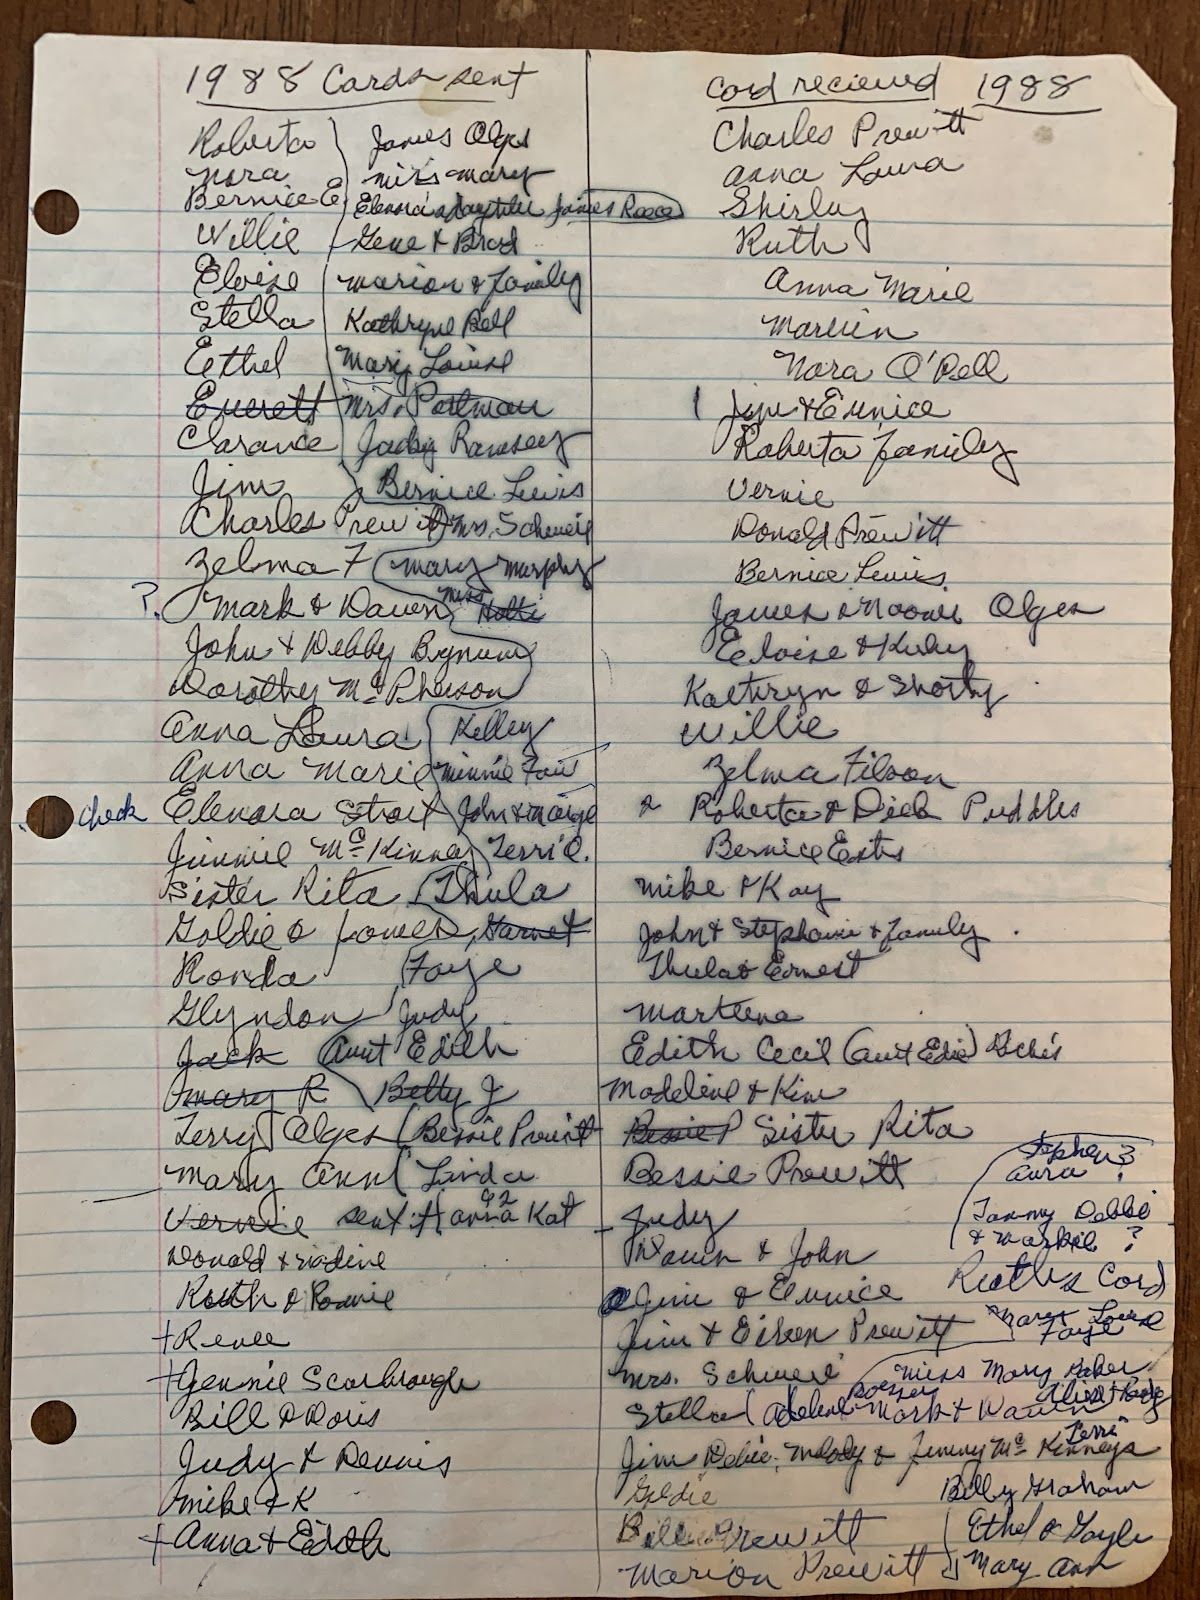 1988 Cards sent
Roberta
Nora
Bernice E
Willie
Eloise
Stella
Ethel
Everett
Clarance
Jim
Charles Prewitt
Zelma F
? Mark & Dawn
John & Debby Bynum
Dorothy McPherson
Anna Laura
Anna Marie
check Elenora Stout
Jimmie McKinney
Sister Rita
Goldie & James
Ronda
Glyndon
Jack
Mary R
Terry Olges
Mary Ann
Vernie sent it
Donald & Nadine
Ruth & Ronnie
+ Renee
+ Gennie Scarbrough
Bill & Doris
Judy & Dennis
Mike & K
+ Anna & Edith
James Olges
Miss Mary
Elenora daughter James Reece
Gene & Brad
Marion & Family
Kathryne Bell
Mary Louise
Mrs. Patman
Jacky Ramsey
Bernice Lewis
Mrs. Schweri
Mary Murphy
Miss
Kelley
Minnie
John & Marge
Terri C.
Thula
Garnet
Faye
Judy
Aunt Edith
Betty J
Bessie Prewitt
Linda
92
Anna Kat
Card recieved 1988
Charles Prewitt
Anna Laura
Shirley
Ruth
Anna Marie
Marvin
Nora O'Dell
1 Jim & Eunice
Roberta family
Vernie
Donald Prewitt
Bernice Lewis
James & Naomi Olges
Eloise & Ruby
Kathryn & Shorty
Willie
Zelma Filson
2 Roberta & Dick Puddles
Bernice Estes
Mike & Kay
John & Stephanie & Family
Thula & Ernest
Marteena
Edith Cecil (Aunt Edie)
Madeline & Kim
Bessie P Sister Rita
Bessie Prewitt
Judy
Dawn & John
Jim & Eunice
Jim & Eileen Prewitt
Mrs. Schweri
Stella
Jim Debie, Melody & Jimmy McKinneys
Goldie
Bill Prewitt
Marion Prewitt
Stephen?
?
Tammy Debbie
& Markie ?
Ruth's Card
Mary Louise
Faye
Miss Mary Baker
Adeline
Mark & Dawn
Terri
Billy Graham
Ethel & Gayle
Mary Ann